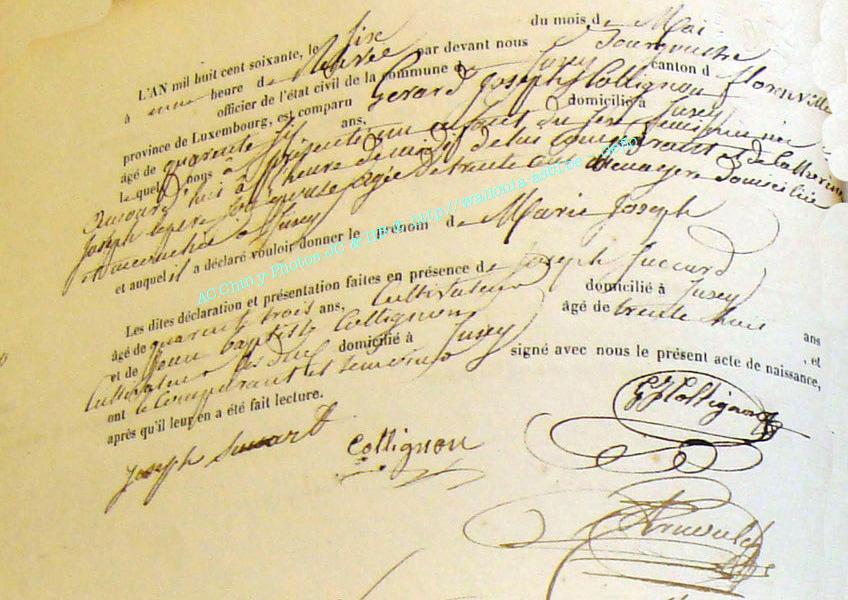 L'AN mil huit cent soixante, le six du mois d e Mai
à heure d e par devant nous Bourgmestre
officier de l'état civil de la commune d e Jusey canton d Florenville
province de Luxembourg, est comparu Gerard Joseph Collignon
âgé de quarante six ans, domicilié à Jusey
lequel nous a présenté un enfant du sexe féminin né
heure de de lui comparant & de Catherine
Joseph son épouse agée de trente Menagere domiciliée
et accouchée à Jusey
et auquel il a déclaré vouloir donner le prénom d e Marie Joseph
Les dites déclaration et présentation faites en présence d e Joseph
âgé de quarante trois ans, Cultivateur domicilié à Jusey
et de Jean baptiste Collignon âgé de trente huit ans
Cultivateur domicilié à Jusey , et
ont le Comparant et temoins signé avec nous le présent acte de naissance,
après qu'il leur en a été fait lecture.
GJCollignon
Joseph
Collignon
AC Chiny Photos JC & http://wallonia-asbl.be